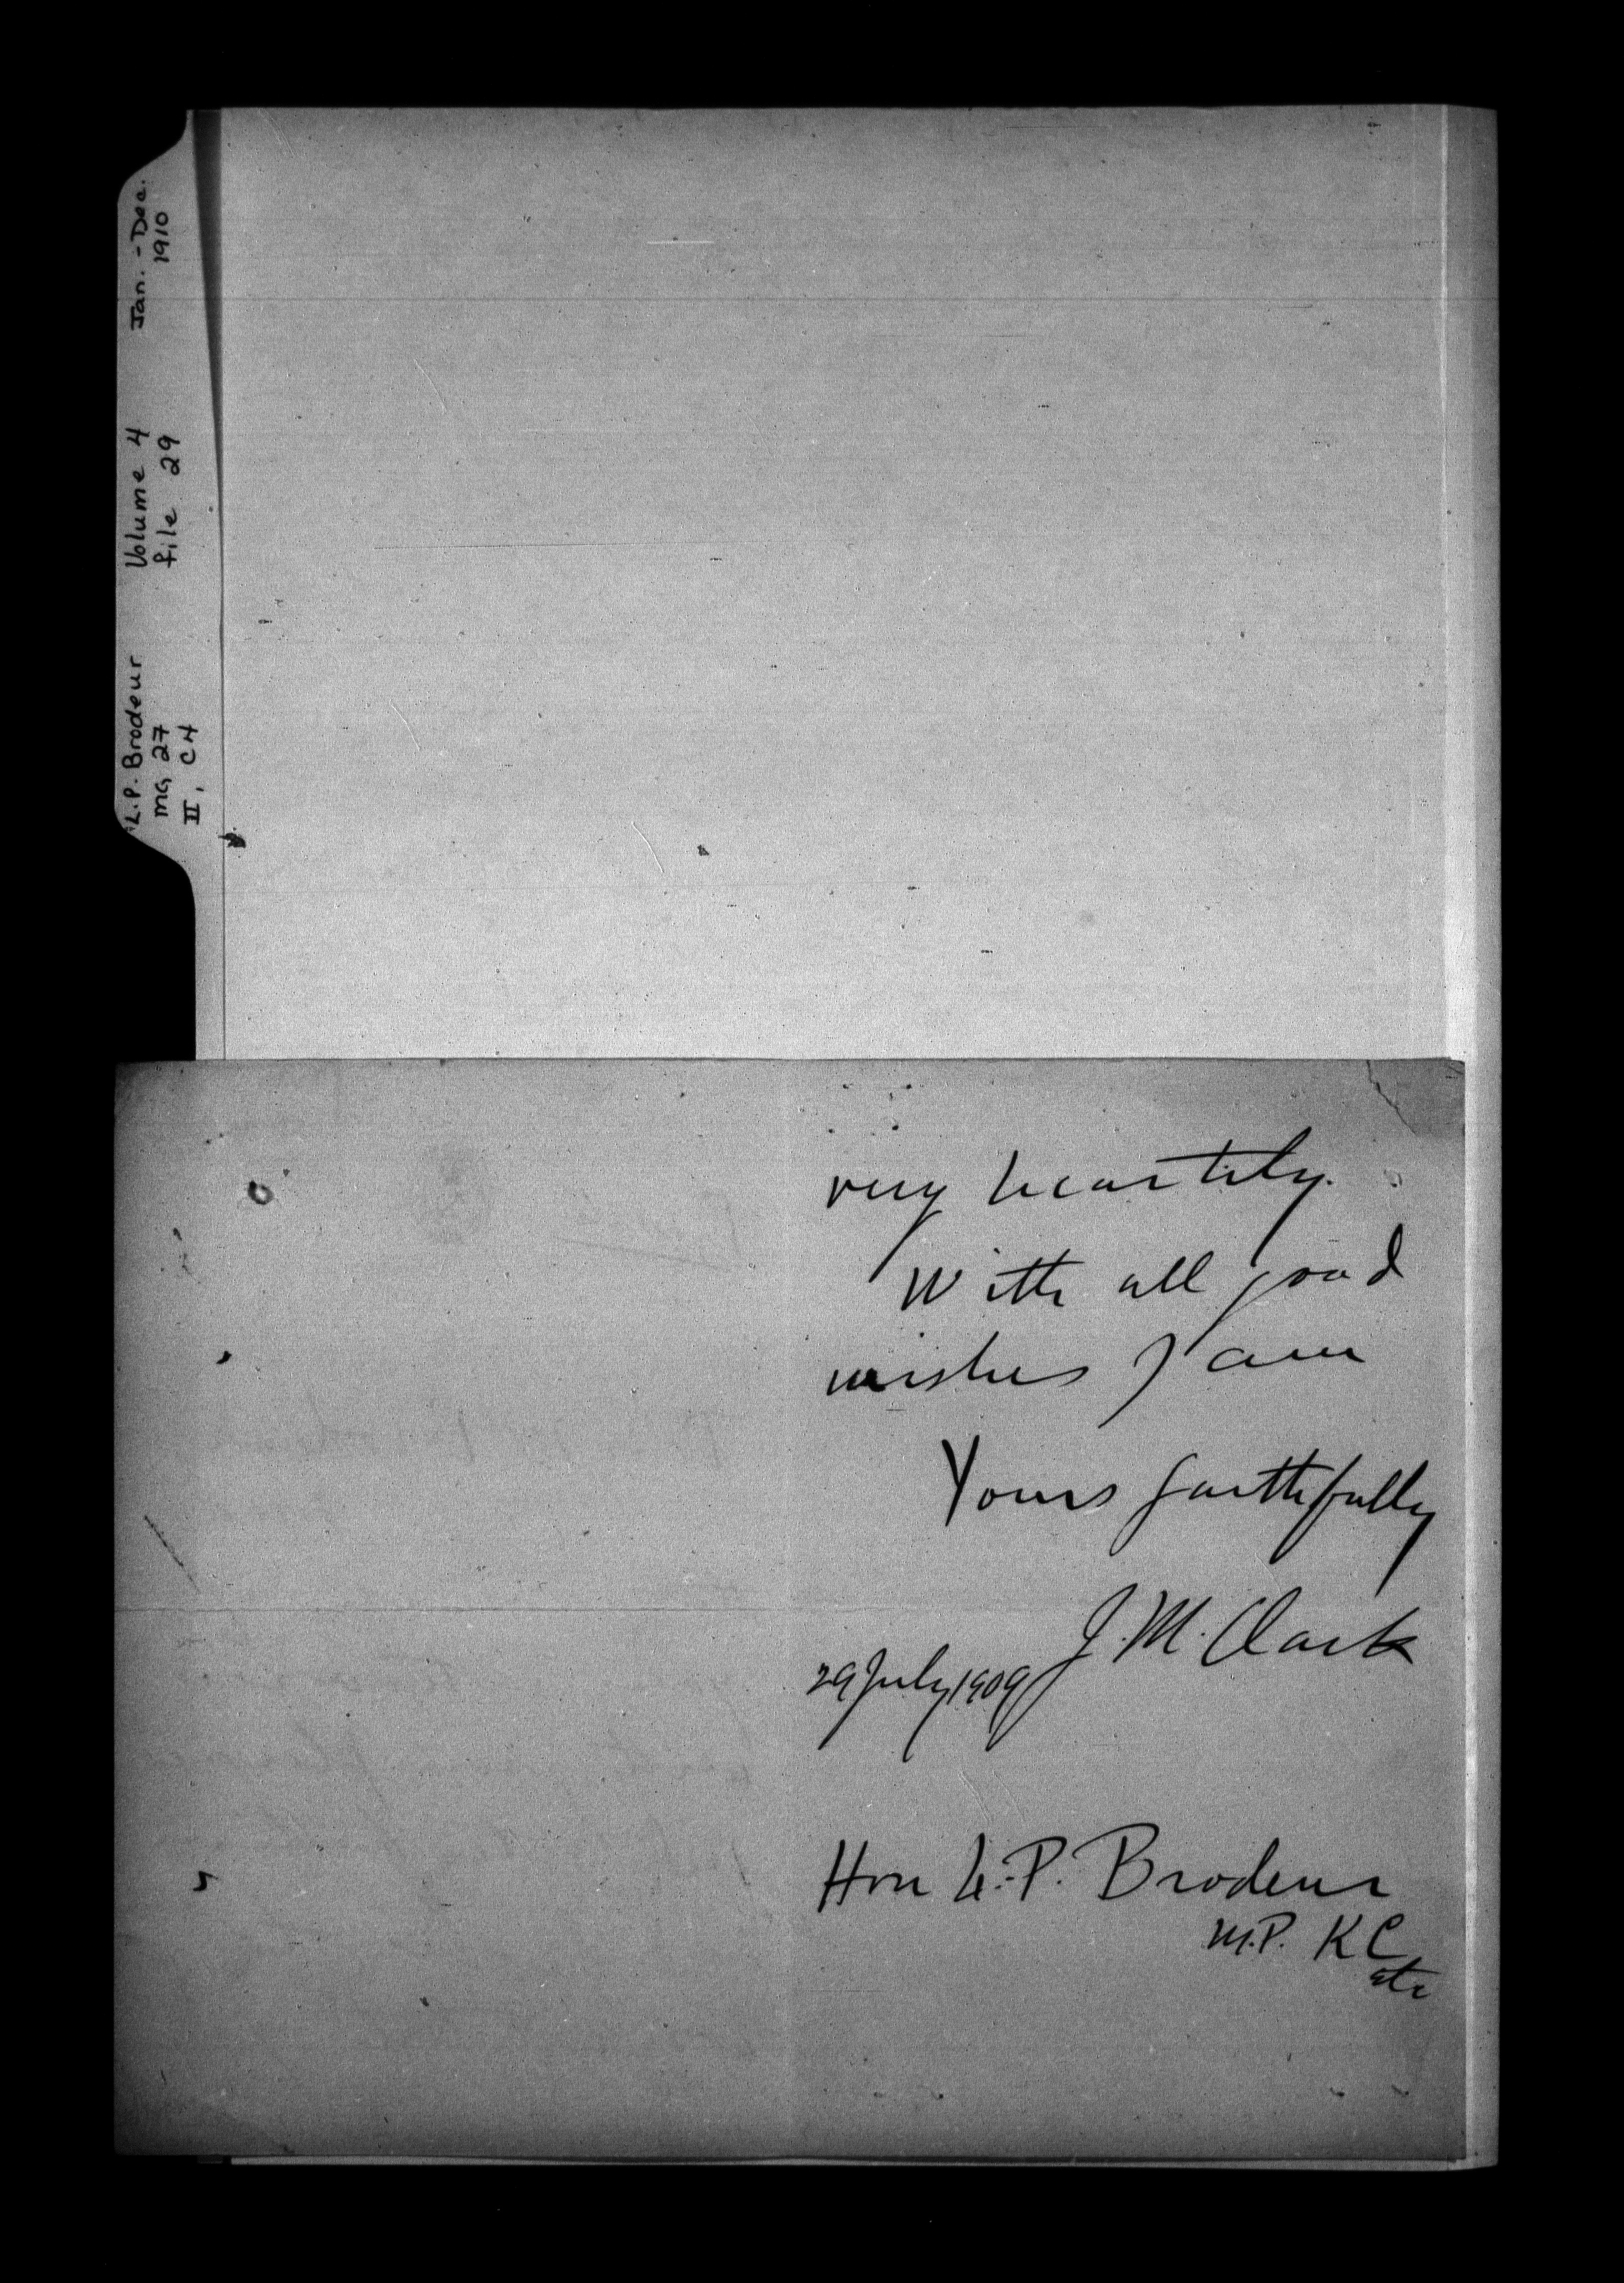 L.P. Brodeur
MG 27
II, C4
Volume 4
file 29
Jan. - Dec.
1910
very heartily.
With all good
wishes I am
Yours faithfully
J. M. Clark
29 July 1909
Hon L. P. Brodeur
M.P. KC
etc